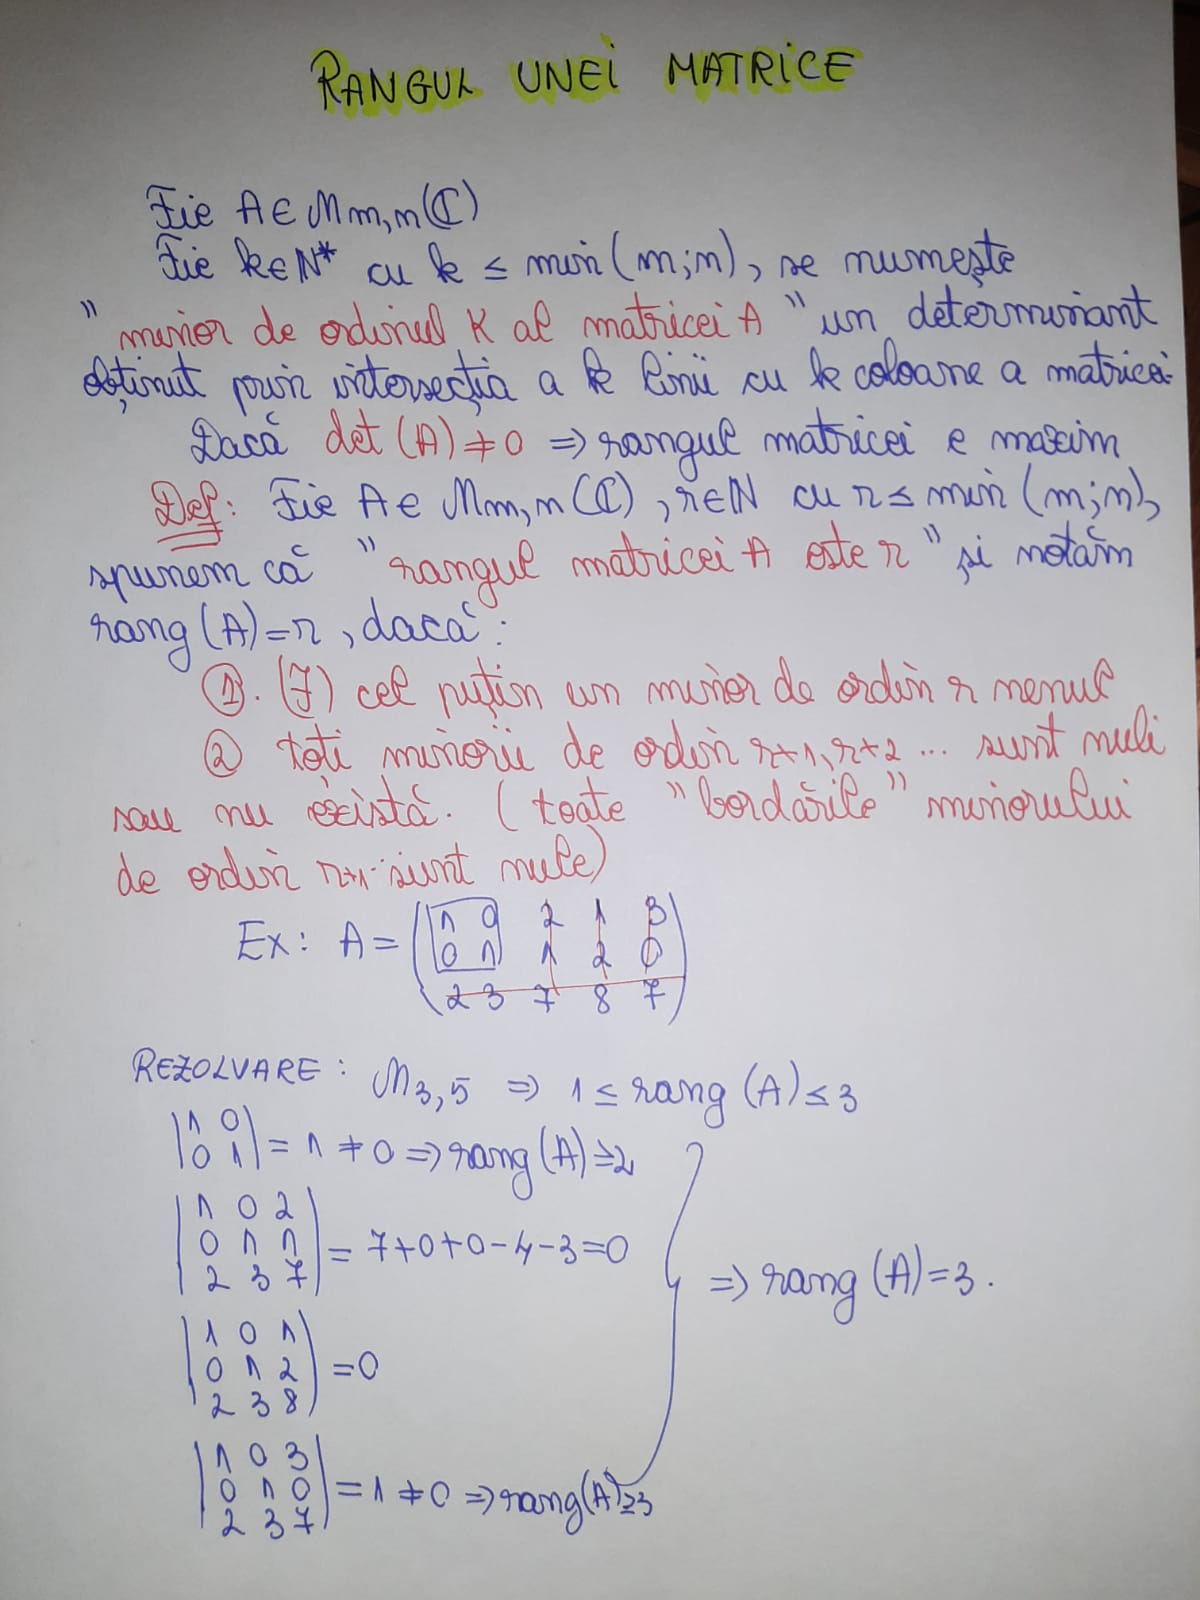 RANGUL UNEI MATRICE
Fie A ∈ Mm,n(ℂ)
Fie k∈N* cu k ≤ min(m;n), se numește
"minor de ordinul K al matricei A" un determinant
obținut prin intersecția a k linii cu k coloane a matricei.
Dacă det(A)≠0 ⇒ rangul matricei e maxim
Def: Fie A∈ Mm,n(ℂ), r∈N cu r≤ min(m;n),
spunem că "rangul matricei A este r" și notăm
rang(A)=r, dacă:
1. (∃) cel puțin un minor de ordin r nenul
2 toți minorii de ordin r+1, r+2 ... sunt nuli
sau nu există. (toate "bordările" minorului
de ordin r+1 sunt nule)
Ex: A = (1 0 2 1 3
0 1 1 2 0
2 3 7 8 7)
REZOLVARE: M3,5 ⇒ 1 ≤ rang(A) ≤ 3
|1 0
0 1| = 1 ≠ 0 ⇒ rang(A) ≥ 2
|1 0 2
0 1 1
2 3 7| = 7+0+0-4-3=0
|1 0 1
0 1 2
2 3 8| = 0
|1 0 3
0 1 0
2 3 7| = 1 ≠ 0 ⇒ rang(A) ≥ 3
⇒ rang(A)=3.